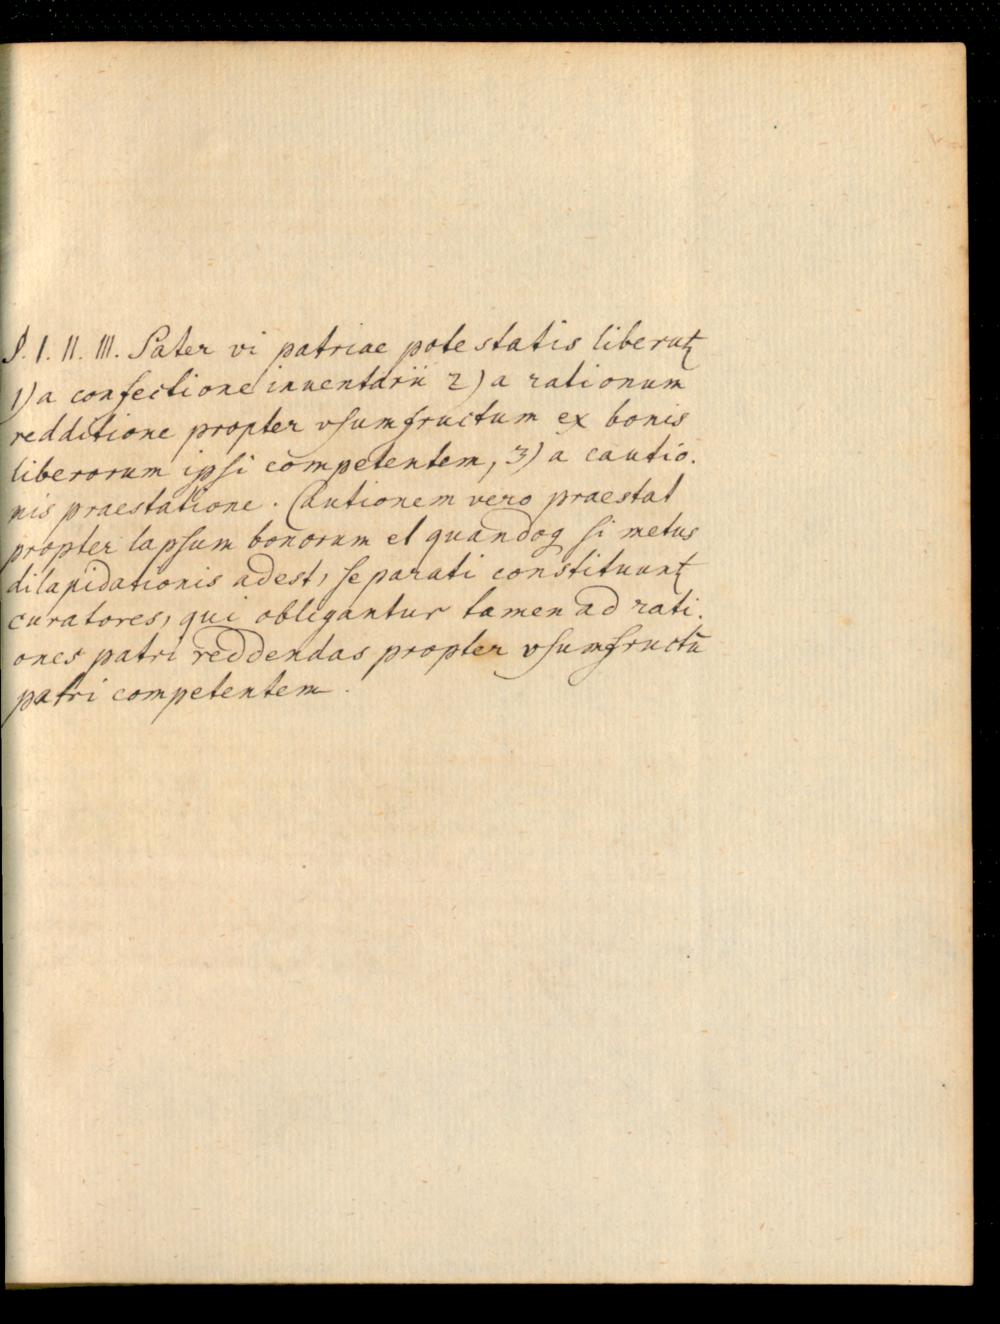 §. I. II. III. Pater vi patriae potestatis liberatꝛ
1) a confectione inuentarii 2) a rationum
redditione propter vsumfructum ex bonis
liberorum ipsi competentem, 3) a cautio.
nis praestatione. Cautionem vero praestat
propter lapsum bonorum et quandoq si metus
dilapidationis adest, separati constituuntꝛ
curatores, qui obligantur tamen ad rati.
ones patri reddendas propter vsumfructū
patri competentem.